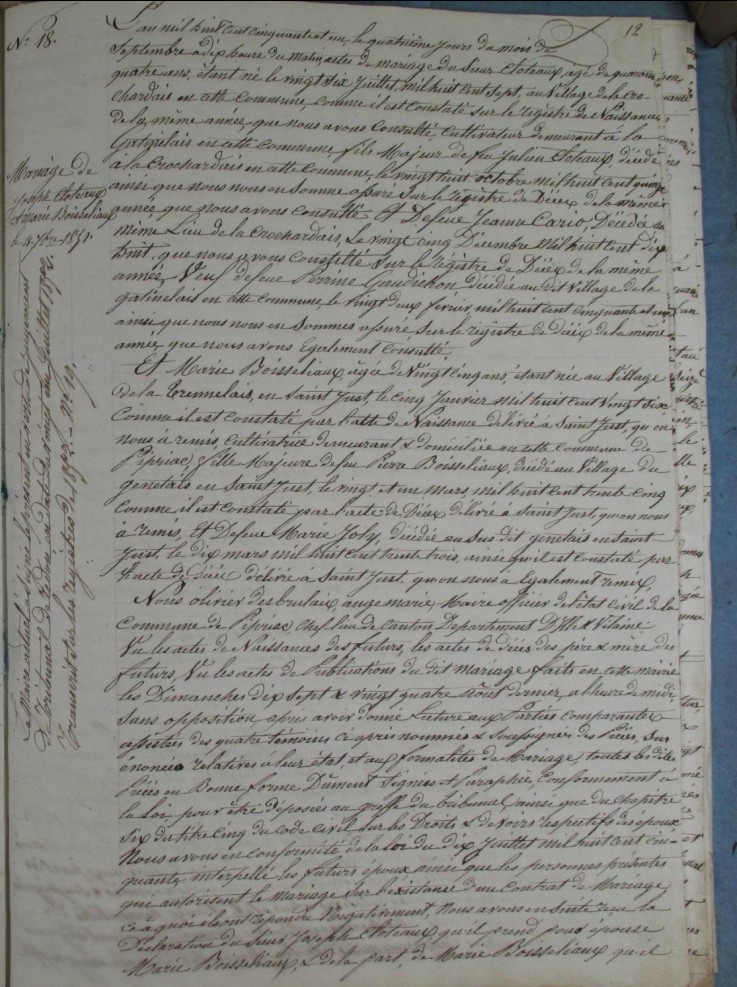 12
N.º 18.
Mariage de
Joseph Etoteaux
& Marie Boisseliaux
le 4 7bre 1851.
La Minute actuel a été
de Tribunal de Redon en date du vingt juillet 1892.
Transcrit sur les registres de 1892. - N.º 19.
L'an mil huit cent cinquante et un, le quatrième jour du mois de
Septembre à dix heures du Matin, actes de mariage du Sieur Etoteaux, agé de quarante
quatre ans, étant né le vingt six Juillet mil huit cent Sept, au Village de la Cro-
chardais en cette Commune, comme il est constaté sur le registre de Naissances
de la même année, que nous avons Consulté, Cultivateur demeurant à la
Gatinelais en cette commune, fils Majeur de feu Julien Etoteaux, décédé
à la Crochardais en cette Commune, le vingt huit octobre mil huit cent quinze
ainsi que nous nous en Somme assuré sur le régistre de Décès de la même
année, que nous avons consulté, Et Defeue Jeanne Cario, Décédée au
même Lieu de la Crochardais, Le vingt cinq Décembre mil huit cent dix
huit, que nous avons Consulté sur le régistre de Décès de la même
année, Veuf defeue Perrine Gaudichon décédée au dit Village de la
gatinelais en cette commune, le vingt deux février, mil huit cent cinquante et un
ainsi que nous nous en Sommes assuré sur le régistre de Décès de la même
année, que nous avons Egalement Consulté.
Et Marie Boisseliaux agée de Vingt Cinq ans, étant née au Village
De la Trennelais, en Saint Just, le Cinq Janvier mil huit cent Vingt six
Comme il est constaté par l'acte de Naissance délivré à Saint Just, qu'on
nous à remis, Cultivatrice demeurant & domiciliée en cette commune de
Pipriac, fille Majeure de feu Pierre Boisseliaux, décédé au Village du
genetais en Saint Just, le vingt et un mars, mil huit cent trente cinq
comme il est constaté par l'acte de Décès délivré à Saint Just, qu'on nous
à remis, Et Defeue Marie Joly, décédée au Sus dit genetais en Saint
Just le dix mars mil huit cent trente trois, ainsi qu'il est constaté par
l'acte de Décès délivré à Saint Just, qu'on nous a également remis.
Nous olivier desbrulaix, ange marie, Maire officier de l'état Civil de la
Commune de Pipriac, chef lieu de Canton Département D'Ille & Vilaine
Vu les actes de Naissances des futurs, les actes de décès des père & mère des
futurs, Vu les actes de Publications du dit Mariage faits en cette mairie
les Dimanches dix sept & vingt quatre Août dernier, à l'heure de midi
Sans opposition après avoir donné Lecture aux Parties Comparantes
assistées des quatre témoins ci après nommés & Soussignés des Pièces, Sus
énoncées relatives à leur état, et aux formalités de Mariage, toutes les dites
Pièces en Bonne forme Dûment Signées et Paraphée, Conformément à
la loi, pour être déposées au greffe du tribunal, ainsi que du Chapitre
Six du titre Cinq du code Civil sur les Droits & devoirs respectifs des époux
Nous avons en conformité de la loi du dix Juillet mil huit cent cin-
quante, interpellé les futurs époux ainsi que les personnes présentes
qui autorisent le Mariage sur l'existance d'un Contrat de Mariage,
ce à quoi ils ont répondu Négativement, Nous avons ensuite reçu la
Déclaration du Sieur Joseph Etoteaux, qu'il prend pour épouse
Marie Boisseliaux, & de la part, de Marie Boisseliaux qu'il